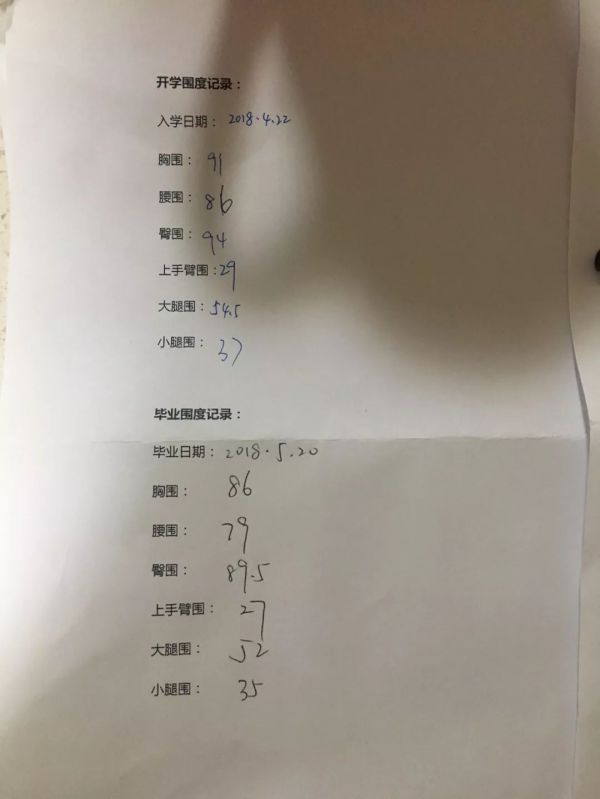 开学围度记录：
入学日期： 2018.4.22
胸围： 91
腰围： 86
臀围： 94
上手臂围：29
大腿围：54.5
小腿围： 37
毕业围度记录：
毕业日期： 2018.5.20
胸围： 86
腰围： 79
臀围： 89.5
上手臂围： 27
大腿围： 52
小腿围： 35